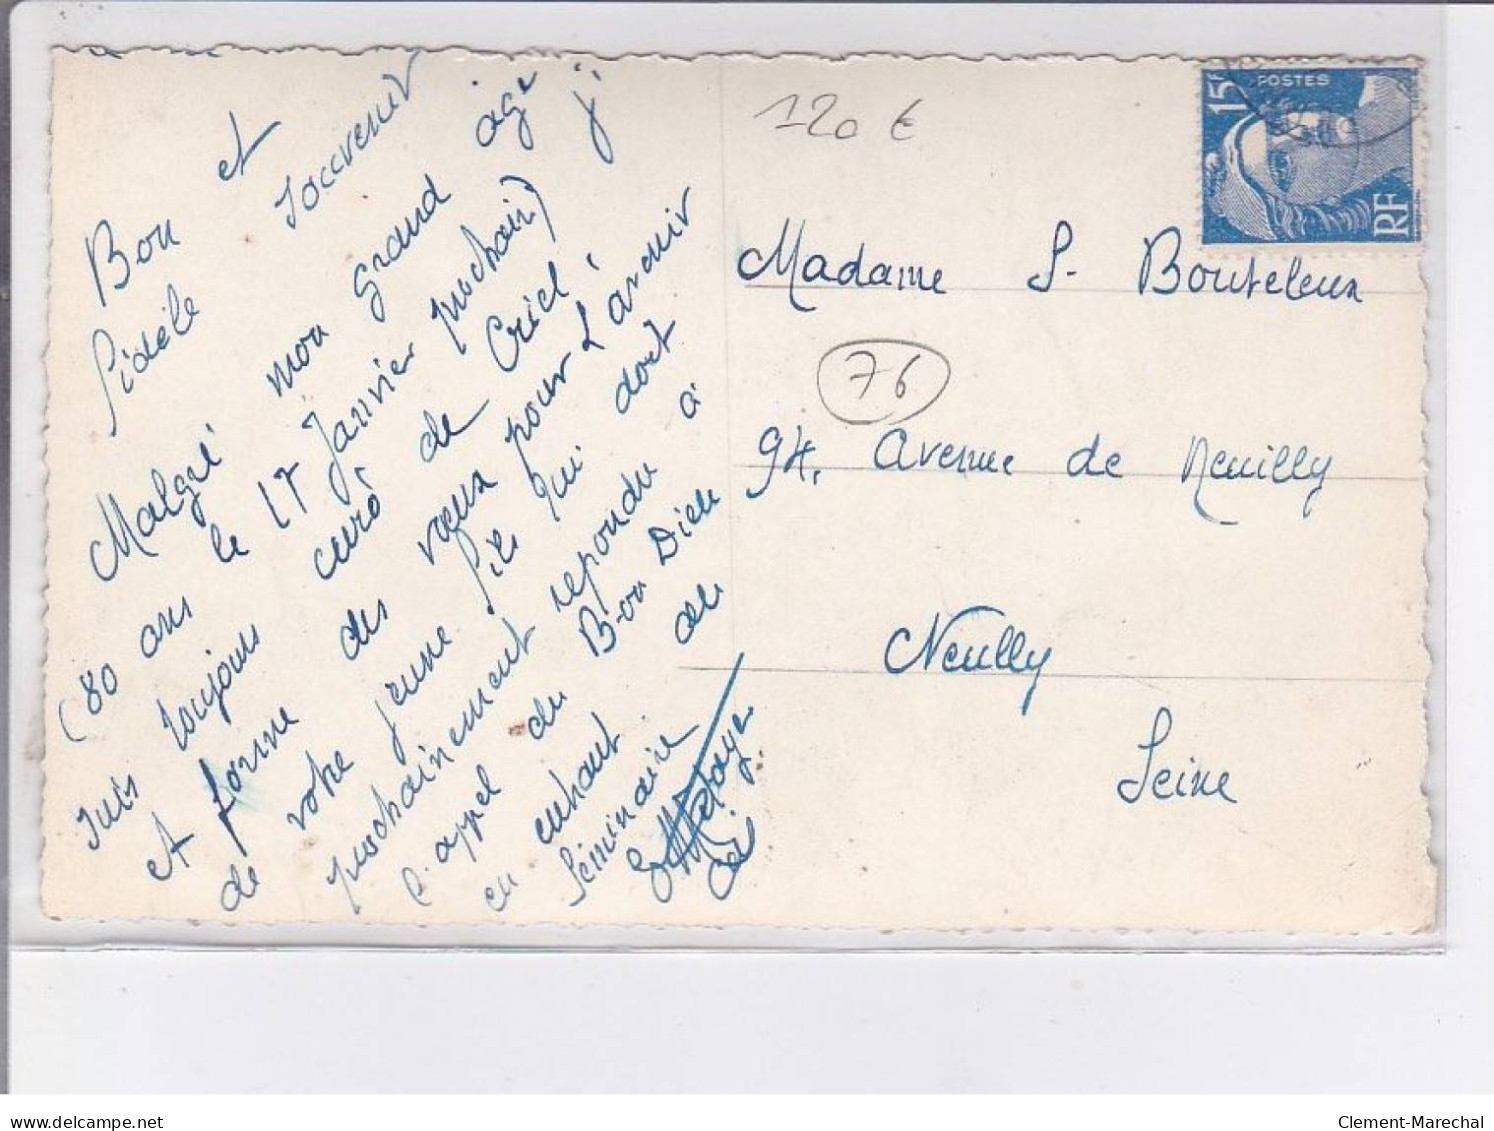 Bon et
fidèle souvenir
Malgré mon grand age j'
(80 ans le 17 Janvier prochain)
suis toujours curé de Criel
et forme des vœux pour l'avenir
de votre jeune fils qui doit
prochainement repondu à
l'appel du Bon Dieu
en entrant au
Séminaire
120 €
15F
POSTES
RF
Madame S. Bouteleux
76
94, avenue de Neuilly
Neuilly
Seine
delcampe.net
Clement-Marechal